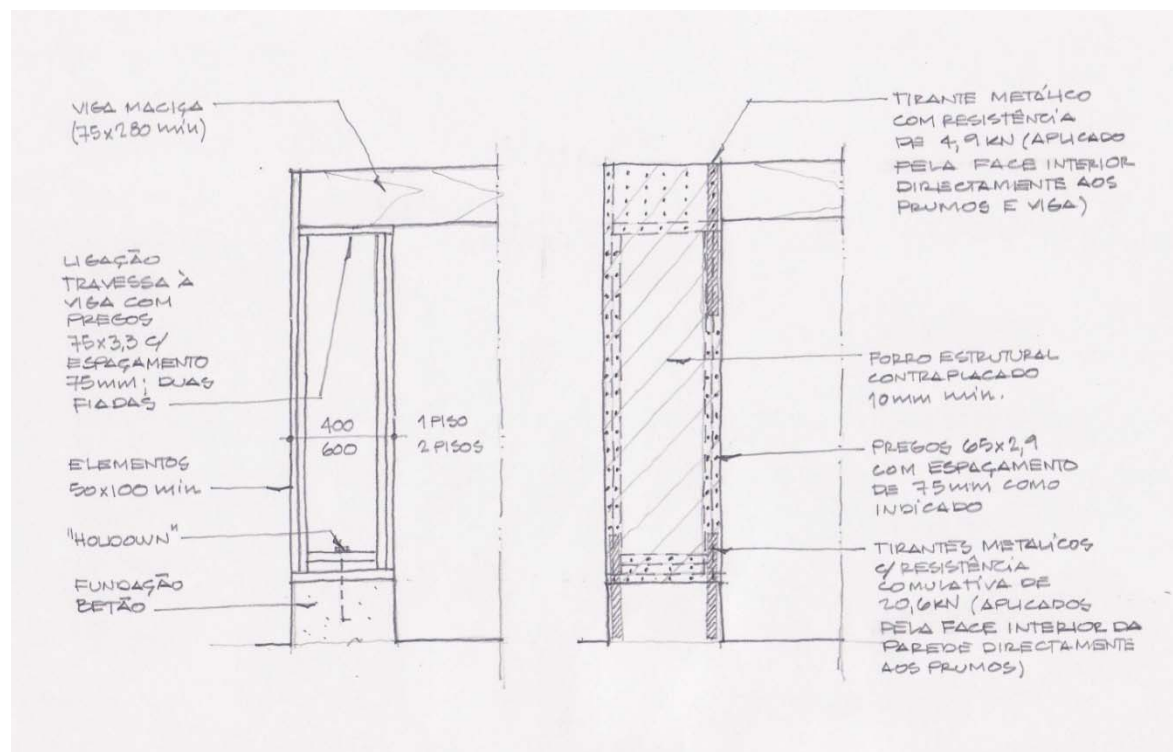 VIGA MACIÇA
(75x280 min)
LIGAÇÃO
TRAVESSA À
VIGA COM
PREGOS
75x3,3 C/
ESPAÇAMENTO
75mm; DUAS
FIADAS
ELEMENTOS
50x100 min
"HOLDOWN"
FUNDAÇÃO
BETÃO
400
600
1 PISO
2 PISOS
TIRANTE METÁLICO
COM RESISTÊNCIA
DE 4,9 KN (APLICADO
PELA FACE INTERIOR
DIRECTAMENTE AOS
PRUMOS E VIGA)
FORRO ESTRUTURAL
CONTRAPLACADO
10mm min.
PREGOS 65x2,9
COM ESPAÇAMENTO
DE 75mm COMO
INDICADO
TIRANTES METALICOS
C/ RESISTÊNCIA
COMULATIVA DE
20,6KN (APLICADOS
PELA FACE INTERIOR DA
PAREDE DIRECTAMENTE
AOS PRUMOS)